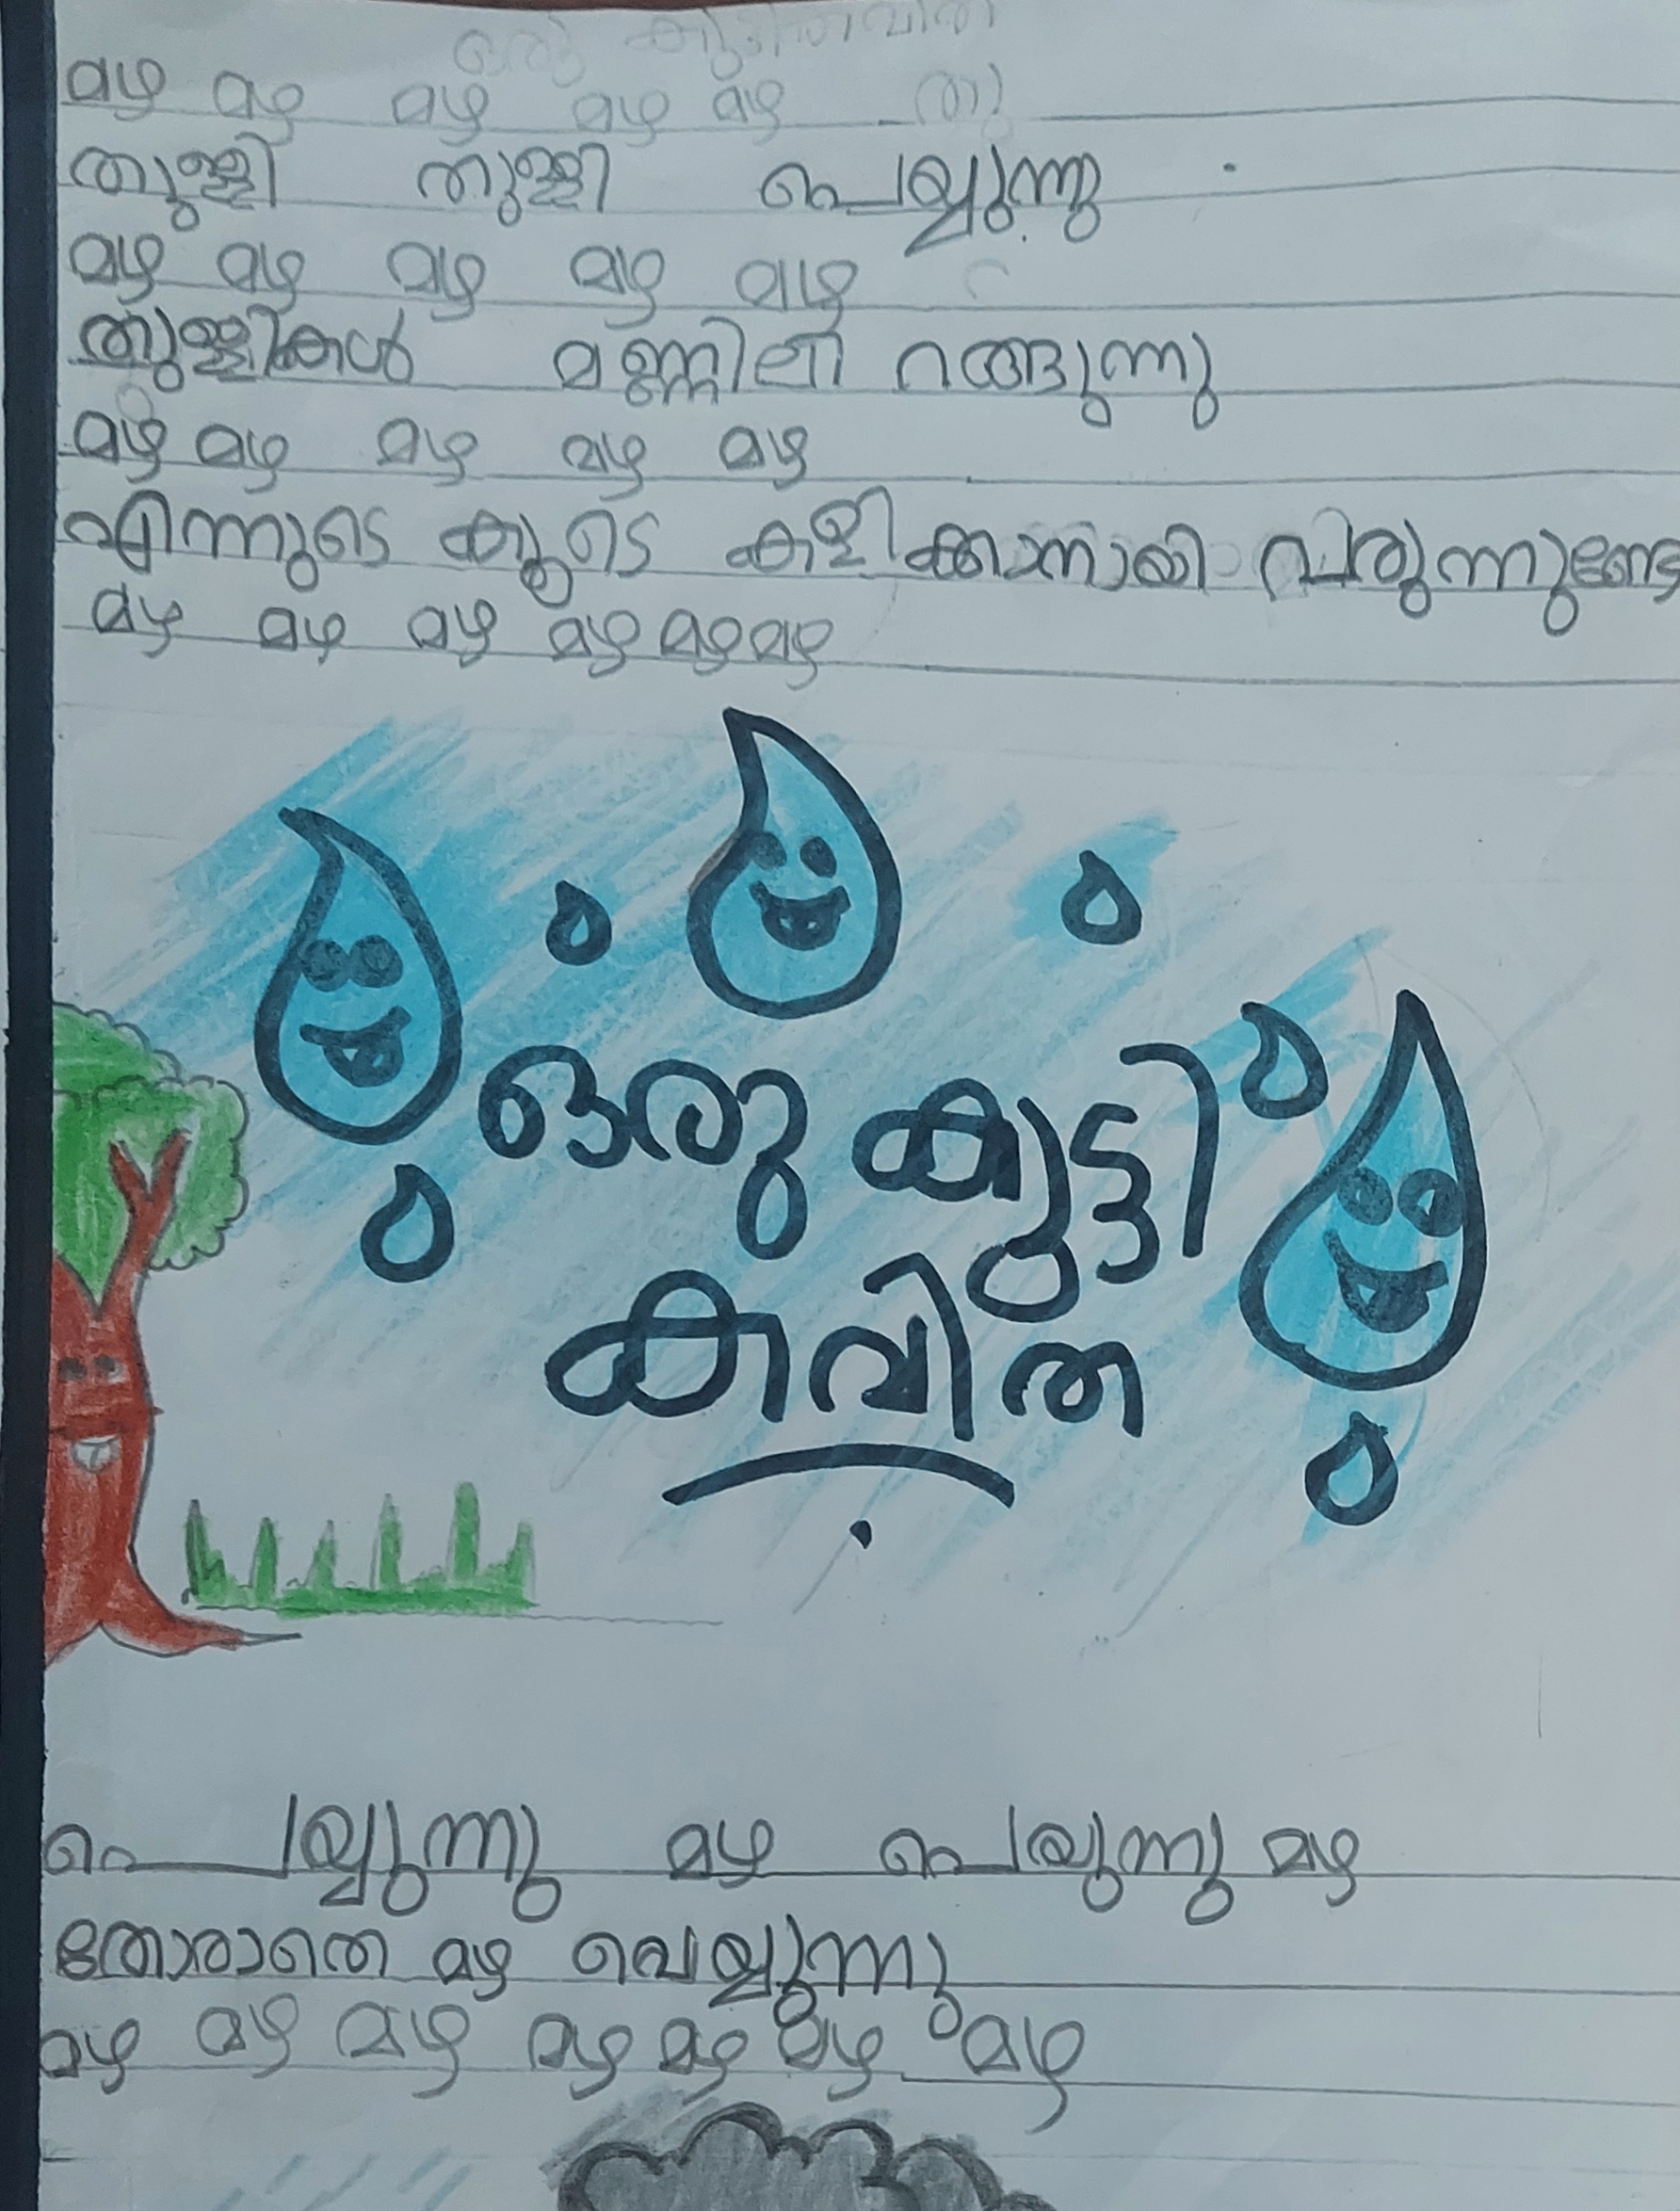 മഴ മഴ മഴ മഴ മഴ
തുള്ളി തുള്ളി പെയ്യുന്നു
മഴ മഴ മഴ മഴ മഴ
തുള്ളികൾ മണ്ണിലി റങ്ങുന്നു
മഴ മഴ മഴ മഴ മഴ
എന്നുടെ കൂടെ കളിക്കാനായി വരുന്നുണ്ടേ
മഴ മഴ മഴ മഴ മഴ മഴ
ഒരു കുട്ടി
കവിത
പെയ്യുന്നു മഴ പെയുന്നു മഴ
തോരാതെ മഴ പെയ്യുന്നു
മഴ മഴ മഴ മഴ മഴ മഴ മഴ